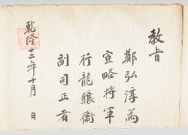 敎旨
鄭弘淳為
宣略將軍
行龍驤衛
副司正者
乾隆十三年十月 日